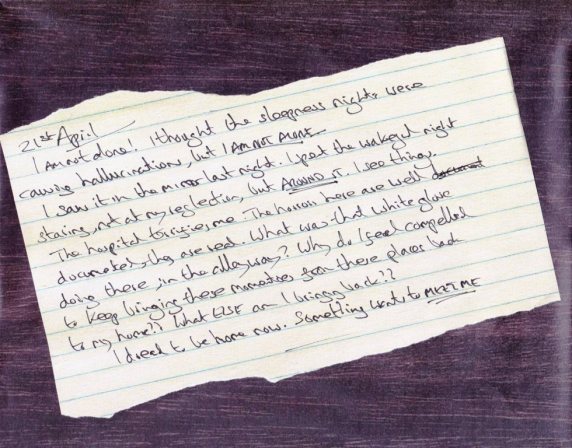 21st April
I am not alone! I thought the sleepness nights were
causing hallucinations, but I AM NOT ALONE
I saw it in the mirror last night. I spent the wakeful night
staring, not at my reflection, but AROUND it. I see things.
The hospital terrifies me. The horrors here are well document
documented, they are real. What was that white glove
doing there, in the alleyway? Why do I feel compelled
to keep bringing these mementoes from these places back
to my home?? What ELSE am I bringing back??
I dread to be home now. Something wants to MEET ME